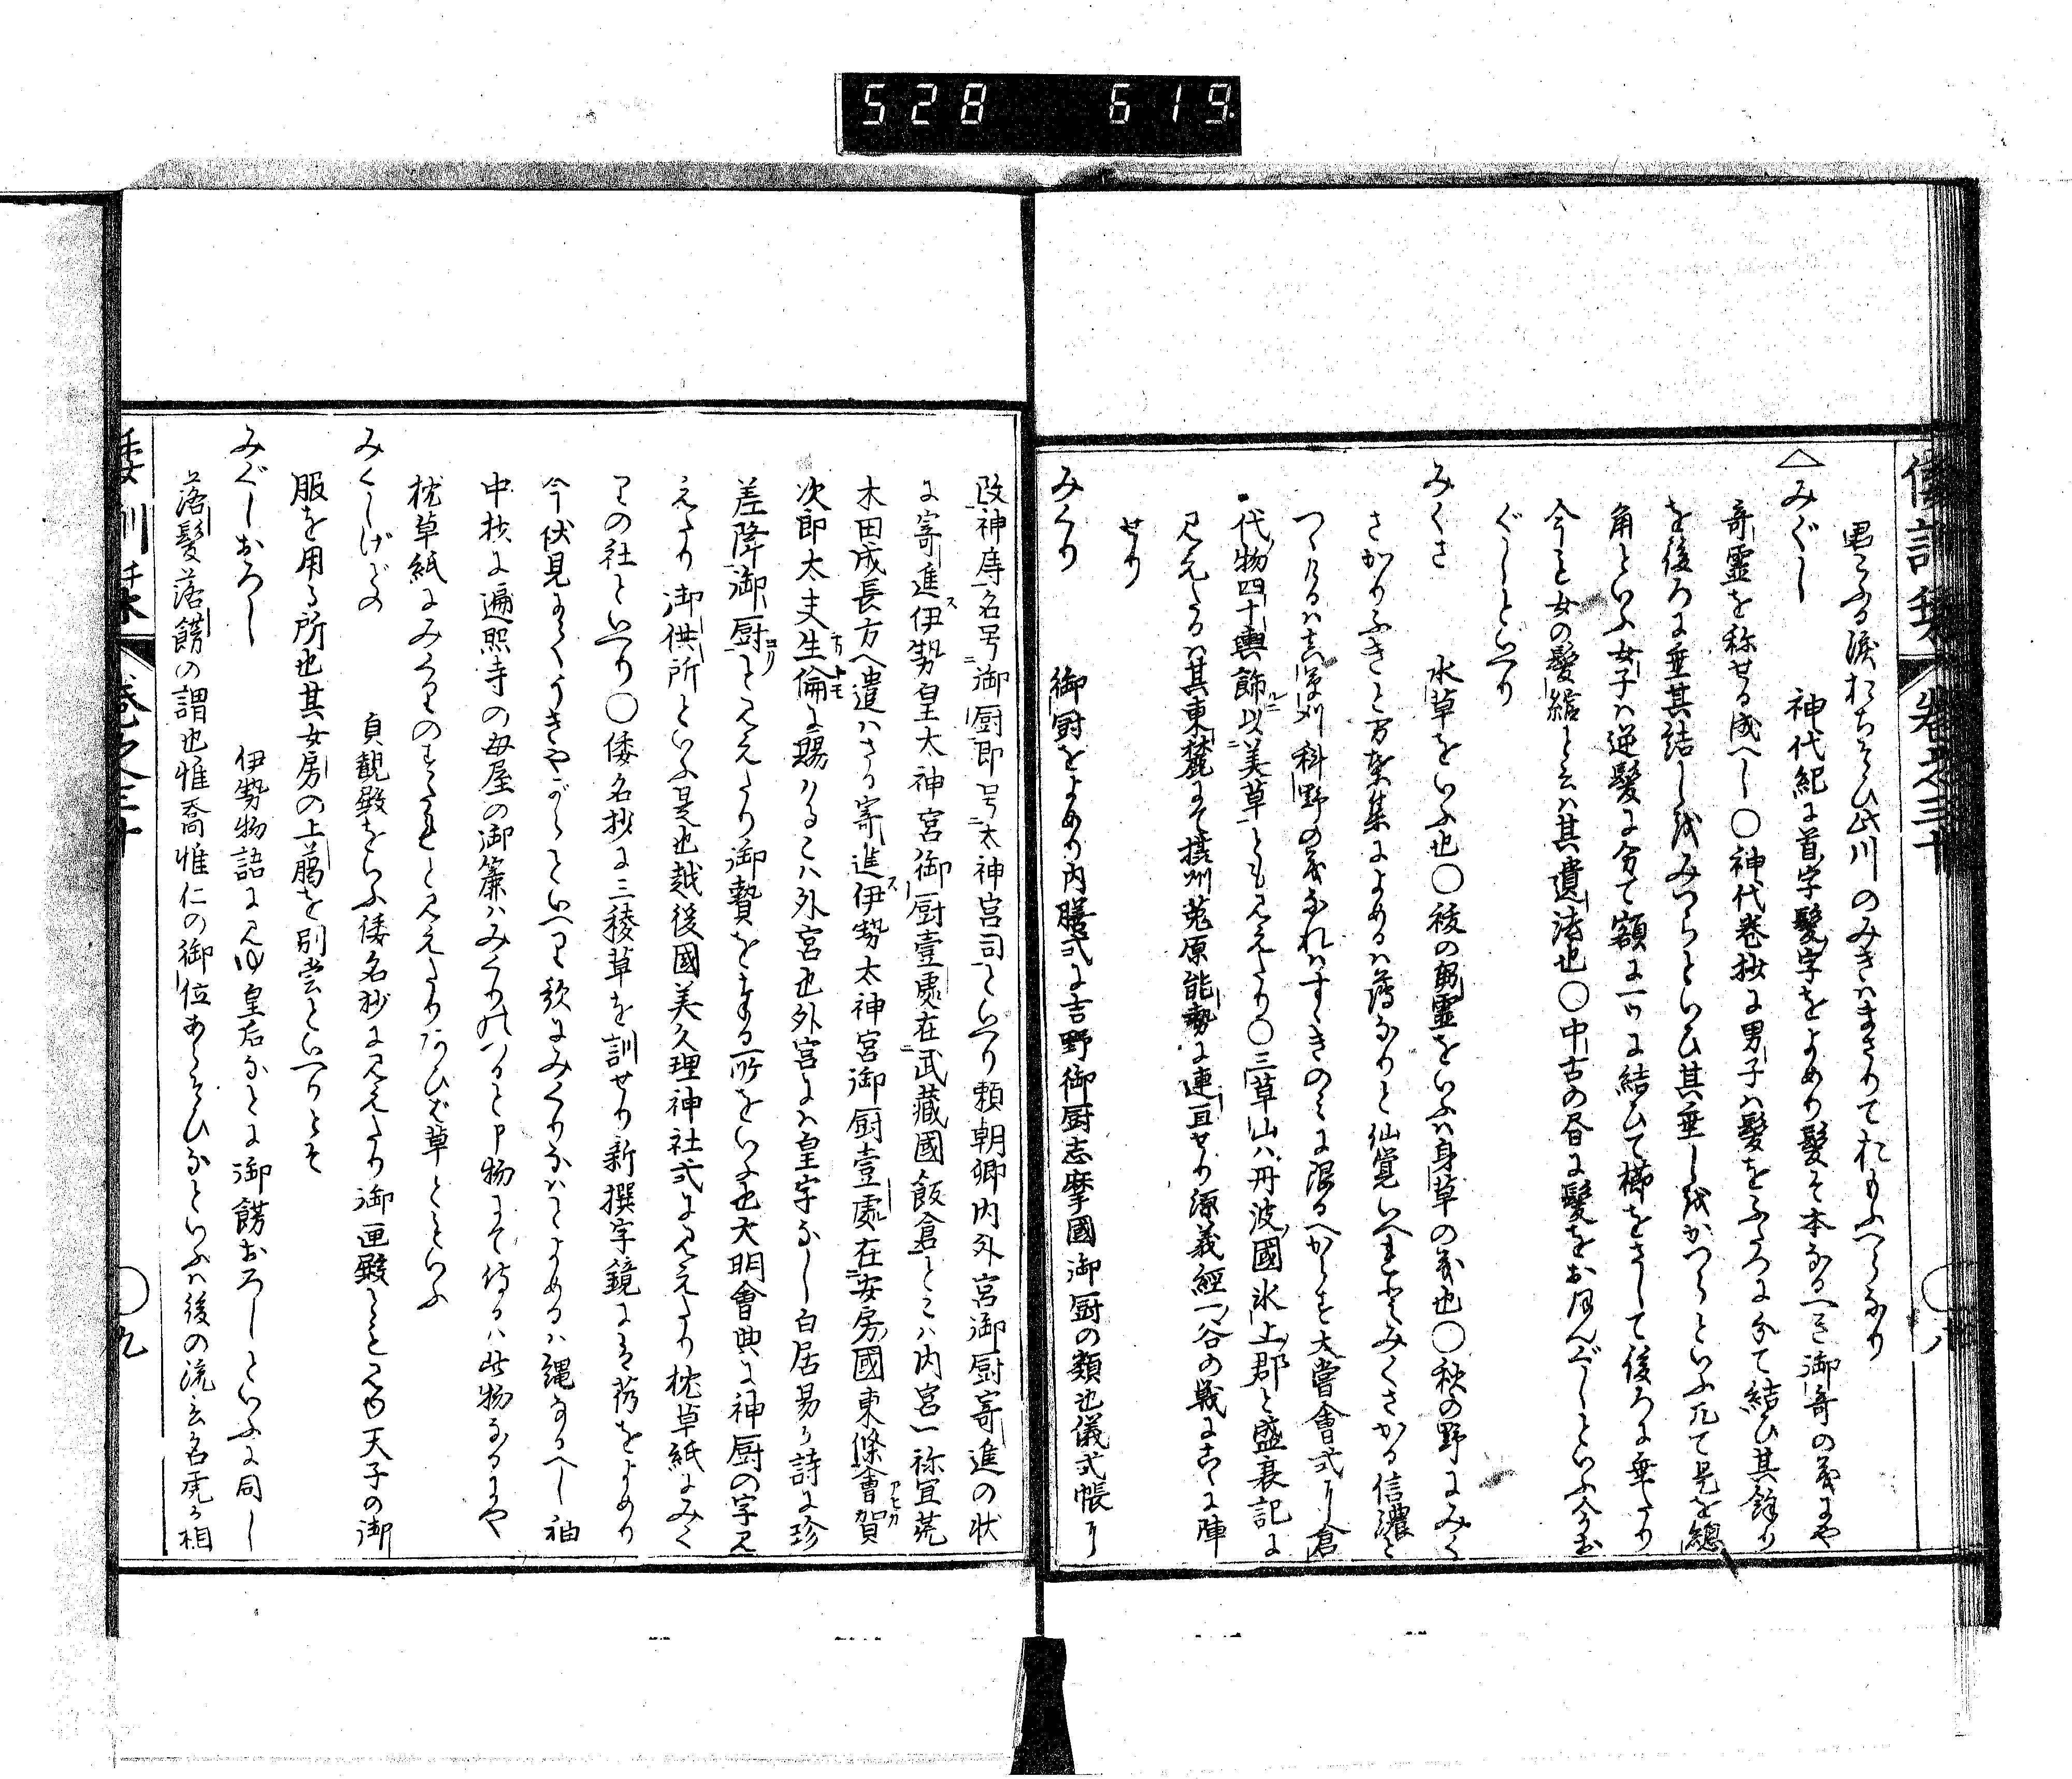 528 619
倭訓栞 巻之三十 ○八
君こふる涙おちそひ此川のみきはまさりてなかるへらなり
△みぐし 神代紀に首字髪字をよめり髪そ本なるへき御奇の義にや
奇霊を称せる成へし○神代巻抄に男子ハ髪をふたつに分て結ひ其餘り
を後ろに垂其結しを みつらといひ其垂しを かつらといふ凡て是を総
角といふ女子ハ逆髪に分て額に一ツに結ひて櫛をさして後ろに垂たり
今も女の髪 ハ其遺法也○中古の昏に髪をおほんぐしといふ今
ぐしといへり
みくさ 水草をいふ也○稜の躬霊をいふハ身草の義也○秋の野にみく
さかりふきと万葉集によめるハ薄なりと仙覚いへ みくさかる信濃と
つゝけるハ 刈科野の義なれハすゝきのミに限るへからす大嘗會式に倉
代物四十輿飾以美草ともみえたり○三草山ハ丹波國氷上郡と盛衰記に
見えたるハ其東麓にて摂州菟原能勢に連亘せり源義經一ノ谷の戦にこゝに陣
せり
みくり 御厨をよめり内膳式に吉野御厨志摩國御厨の類也儀式帳に
改神庤名号御厨即号太神宮司といへり頼朝卿内外宮御厨寄進の状
に寄進伊勢皇大神宮御厨壹處在武藏國飯倉とハ内宮一祢宜荒
木田成長方へ遣ハさる寄進伊勢太神宮御厨壹處在安房國東條會賀
次郎太夫生倫に賜ハるハ外宮也外宮にハ皇字なし白居易か詩に珍
差降御厨とみえたり御贄を る所をいふ也大明會典に神厨の字見
えたり御供所といふ是也越後國美久理神社式に見えたり枕草紙にみく
りの社といへり○倭名抄に三稜草を訓せり新撰字鏡に をよめり
今伏見にてうきやがらといへり歌にみくりなハとよめるハ縄なるへし袖
中抄に遍照寺の母屋の御簾ハみくりのつると申物にて侍るハ此物なるにや
枕草紙にみくりのすたれとみえたり くひず草ともいふ
みくしげどの 貞観殿をいふ倭名抄に見えたり御匣殿とも見ゆ天子の御
服を用る所也其女房の上﨟を別當といへりとそ
みぐしおろし 伊勢物語に見ゆ皇后なとに御餝おろしといふに同し
落髪落餝の謂也惟喬惟仁の御位あらそひなといふハ後の流言名虎か相
倭訓栞 巻之三十 ○九